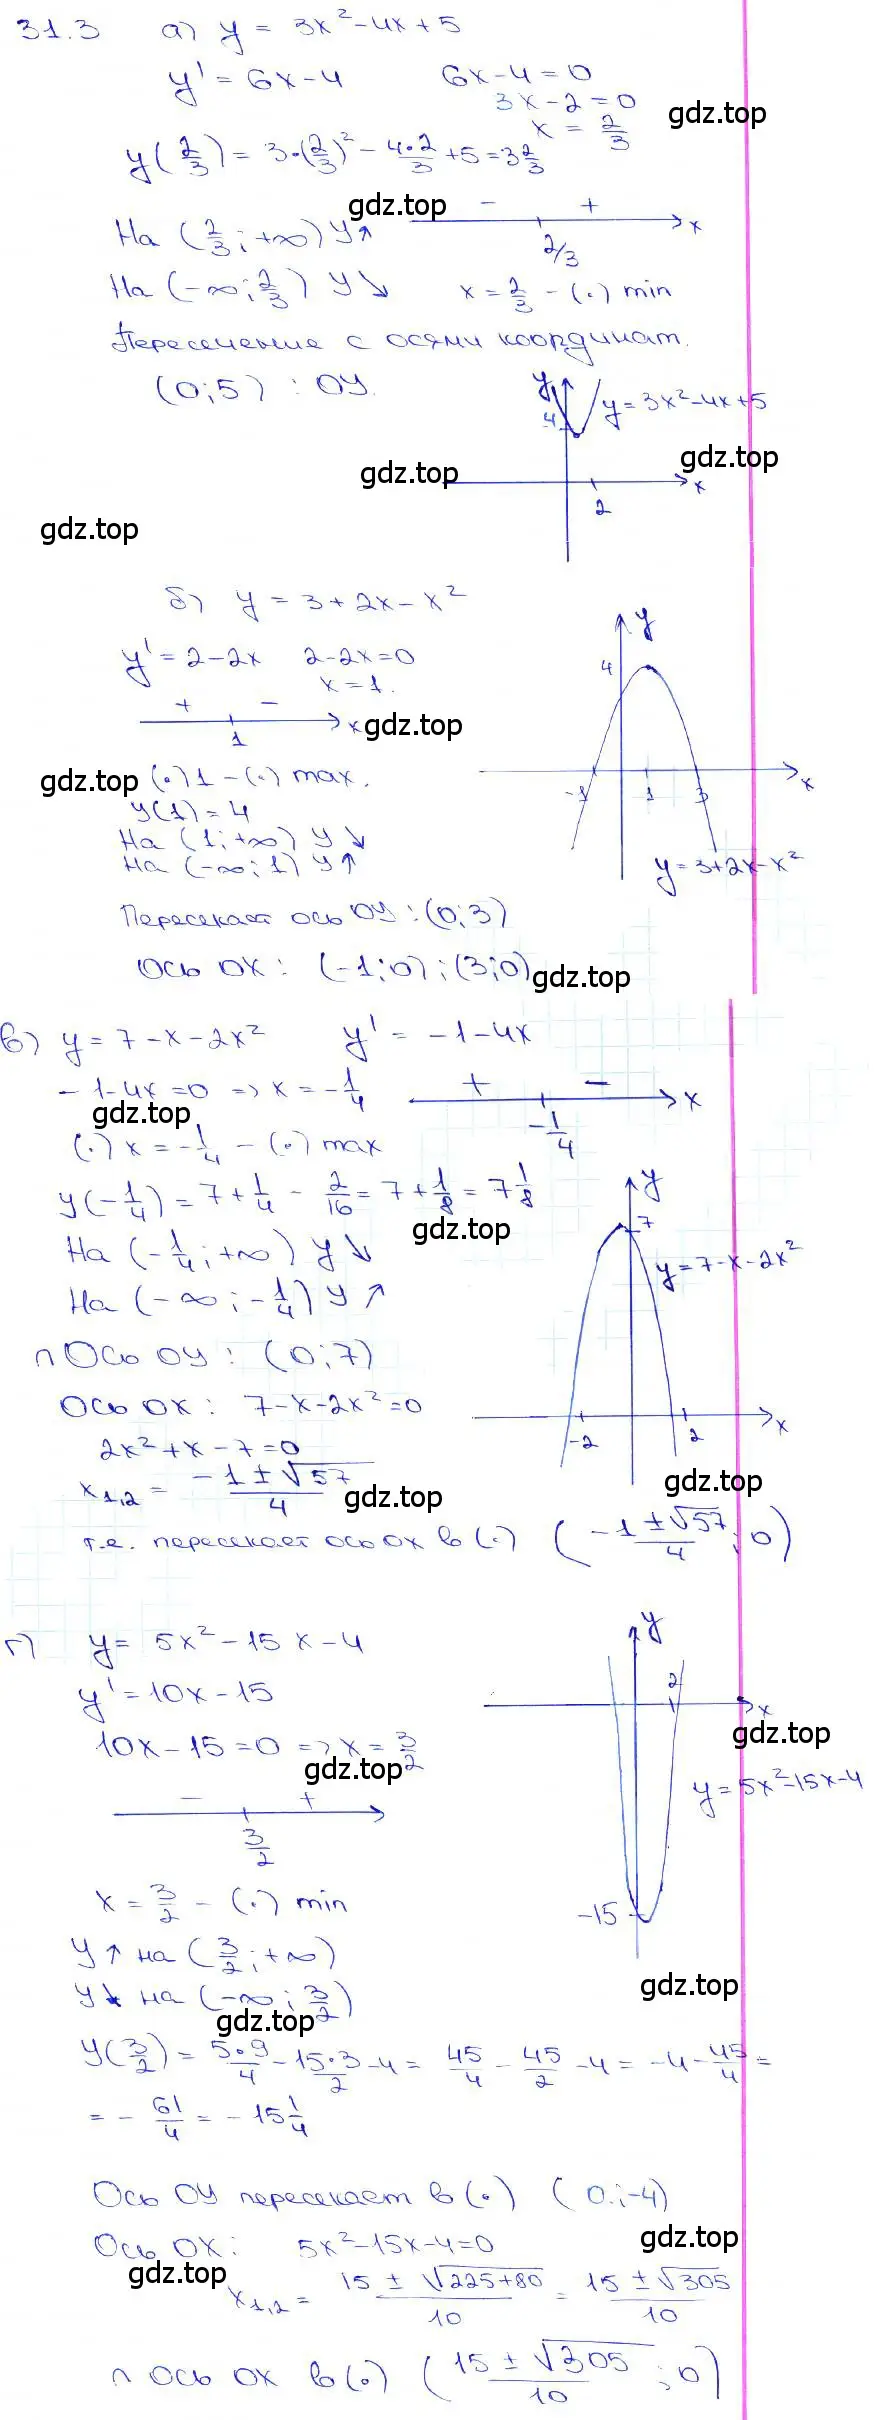 31.3 а) y = 3x² - 4x + 5
y' = 6x - 4 6x - 4 = 0
3x - 2 = 0
gdz.top
x = 2/3
y(2/3) = 3·(2/3)² - 4·2/3 + 5 = 3 2/3
gdz.top
- +
На (2/3; +∞) y↑
2/3 x
На (-∞; 2/3) y↘ x = 2/3 - (·) min
Пересечение с осями координат.
(0; 5) : OY.
y
4
y = 3x² - 4x + 5
gdz.top
gdz.top
x
2
gdz.top
б) y = 3 + 2x - x²
y
y' = 2 - 2x 2 - 2x = 0
4
x = 1.
+ -
1 x
gdz.top
gdz.top
(·) 1 - (·) max.
-1 1 3 x
y(1) = 4
На (1; +∞) y↘
На (-∞; 1) y↑
y = 3 + 2x - x²
Пересекает ось OY : (0; 3)
Ось OX : (-1; 0) ; (3; 0)
gdz.top
в) y = 7 - x - 2x² y' = -1 - 4x
-1 - 4x = 0 => x = -1/4
+ -
-1/4 x
gdz.top
(·) x = -1/4 - (·) max
y(-1/4) = 7 + 1/4 - 2/16 = 7 + 1/8 = 7 1/8
y
7
gdz.top
На (-1/4; +∞) y↘
y = 7 - x - 2x²
На (-∞; -1/4) y↗
∩ Ось OY : (0; 7)
Ось OX : 7 - x - 2x² = 0
-2 2 x
2x² + x - 7 = 0
x1,2 = (-1 ± √57)/4
gdz.top
gdz.top
т.е. пересекает ось OX в (·) ((-1 ± √57)/4; 0)
г) y = 5x² - 15x - 4
y
y' = 10x - 15
2
x
10x - 15 = 0 => x = 3/2
gdz.top
gdz.top
- +
3/2
y = 5x² - 15x - 4
x = 3/2 - (·) min
-15
y↑ на (3/2; +∞)
y↘ на (-∞; 3/2)
gdz.top
gdz.top
y(3/2) = 5·9/4 - 15·3/2 - 4 = 45/4 - 45/2 - 4 = -4 - 45/4 =
= -61/4 = -15 1/4
Ось OY пересекает в (·) (0; -4)
Ось OX : 5x² - 15x - 4 = 0
gdz.top
gdz.top
x1,2 = (15 ± √(225+80))/10 = (15 ± √305)/10
∩ ось OX в (·) ((15 ± √305)/10; 0)